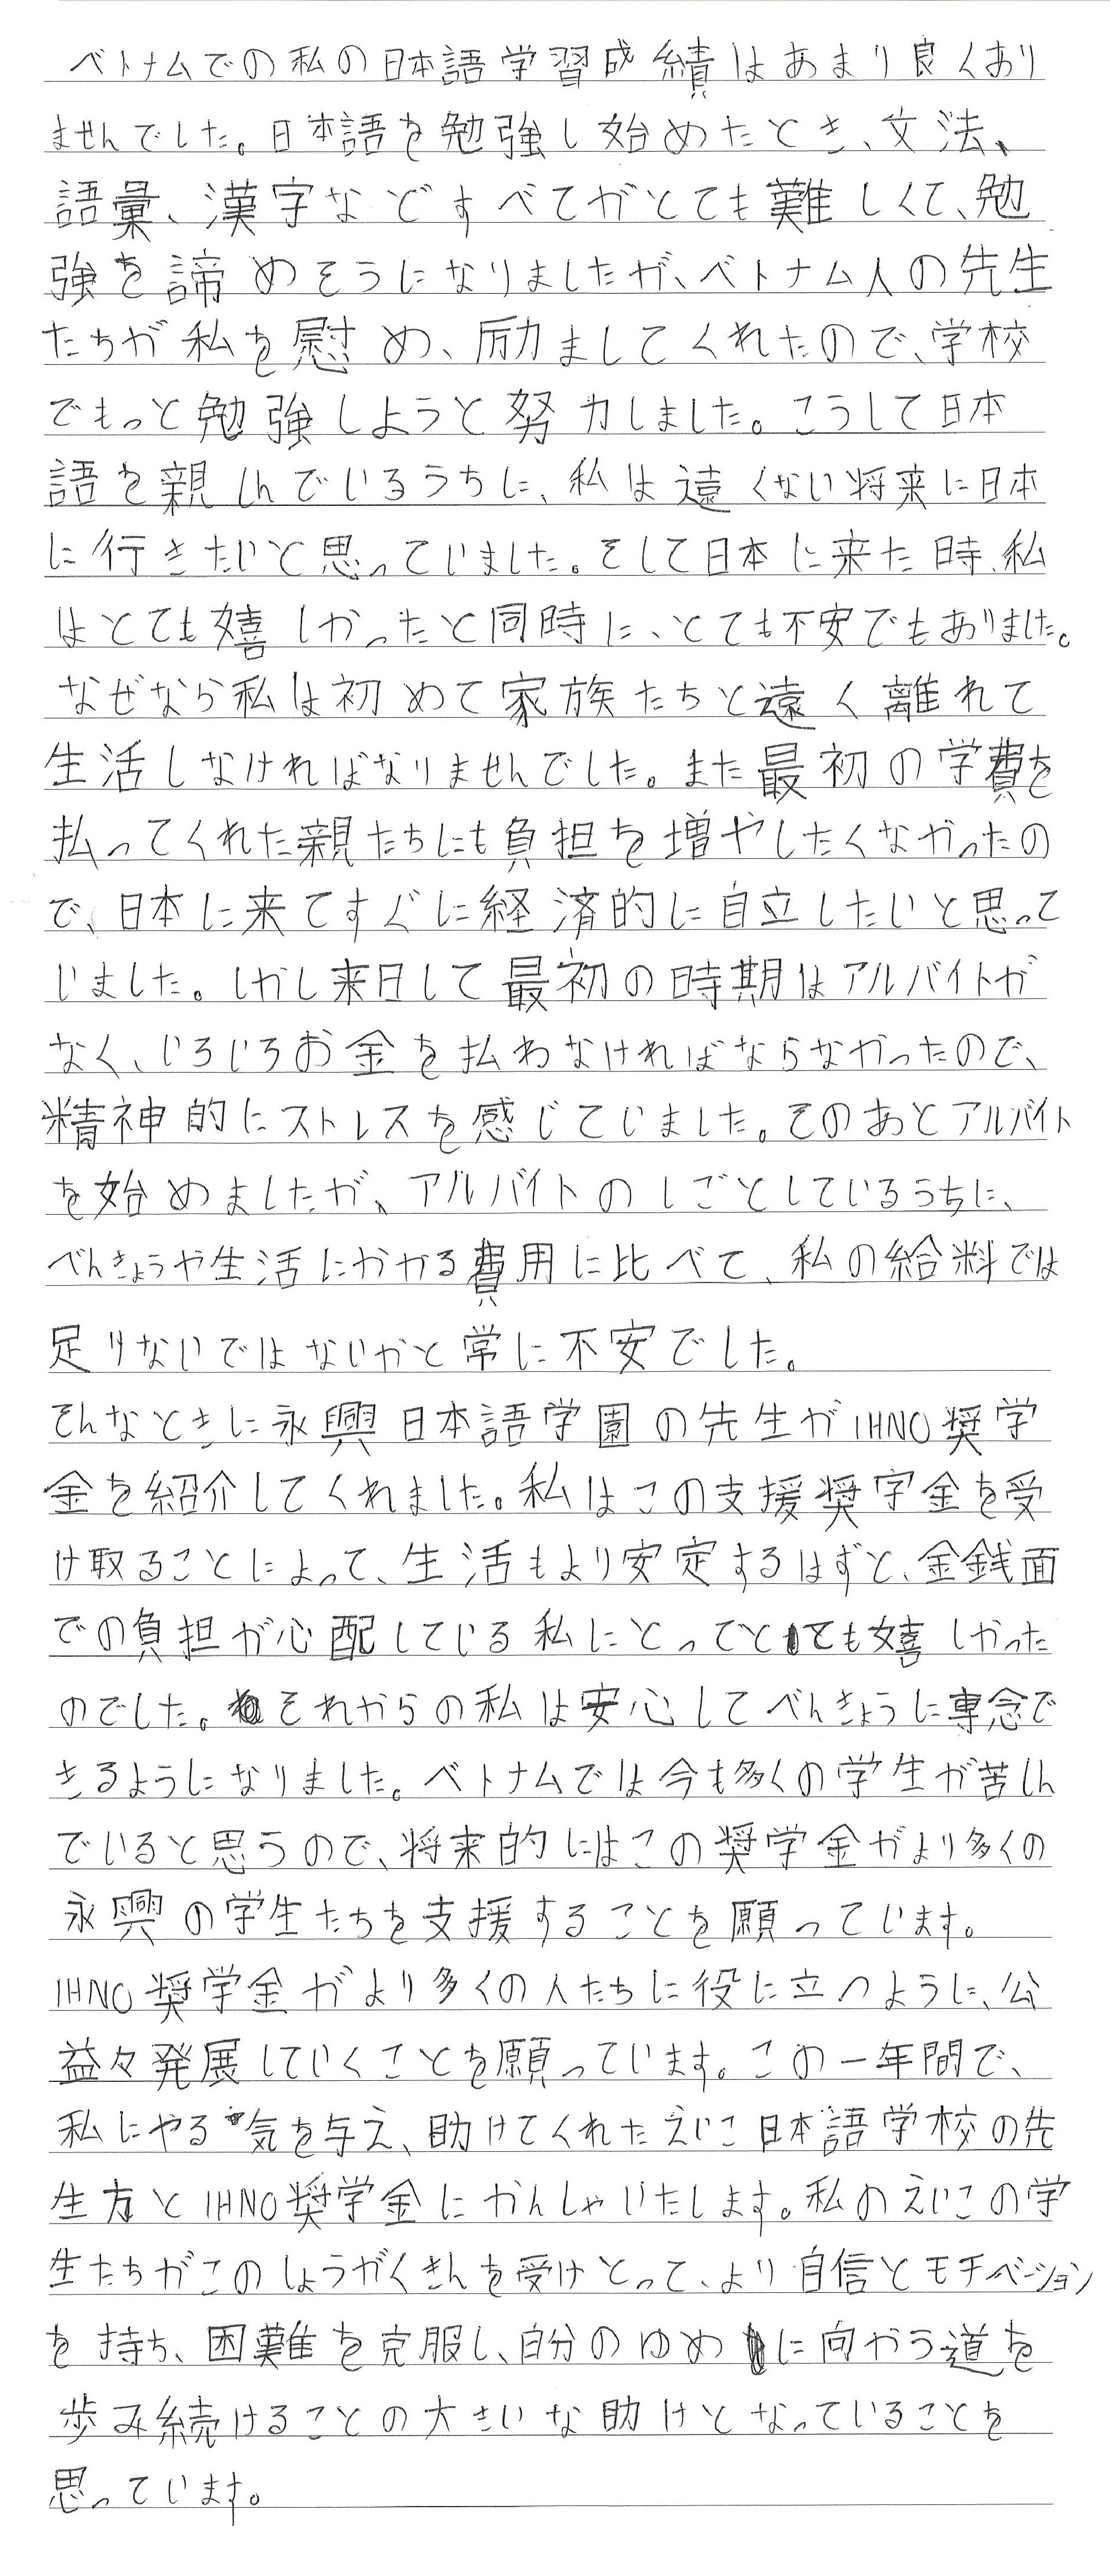 ベトナムでの私の日本語学習成績はあまり良くあり
ませんでした。日本語を勉強し始めたとき、文法、
語彙、漢字などすべてがとても難しくて、勉
強を諦めそうになりましたが、ベトナム人の先生
たちが私を慰め、励ましてくれたので、学校
でもっと勉強しようと努力しました。こうして日本
語を親しんでいるうちに、私は遠くない将来に日本
に行きたいと思っていました。そして日本に来た時、私
はとても嬉しかったと同時に、とても不安でもありました。
なぜなら私は初めて家族たちと遠く離れて
生活しなければなりませんでした。また最初の学費を
払ってくれた親たちにも負担を増やしたくなかったの
で、日本に来てすぐに経済的に自立したいと思って
いました。しかし来日して最初の時期はアルバイトが
なく、いろいろお金を払わなければならなかったので、
精神的にストレスを感じていました。そのあとアルバイト
を始めましたが、アルバイトのしごとしているうちに、
べんきょうや生活にかかる費用に比べて、私の給料では
足りないではないかと常に不安でした。
そんなときに永興日本語学園の先生がIHNO奨学
金を紹介してくれました。私はこの支援奨学金を受
け取ることによって、生活もより安定するはずと、金銭面
での負担が心配している私にとってとても嬉しかった
のでした。それからの私は安心してべんきょうに専念で
きるようになりました。ベトナムでは今も多くの学生が苦しん
でいると思うので、将来的にはこの奨学金がより多くの
永興の学生たちを支援することを願っています。
IHNO奨学金がより多くの人たちに役に立つように、公
益々発展していくことを願っています。この一年間で、
私にやる気を与え、助けてくれたえいこ日本語学校の先
生方とIHNO奨学金にかんしゃいたします。私のえいこの学
生たちがこのしょうがくきんを受けとって、より自信とモチベーション
を持ち、困難を克服し、自分のゆめに向かう道を
歩み続けることの大きいな助けとなっていることを
思っています。